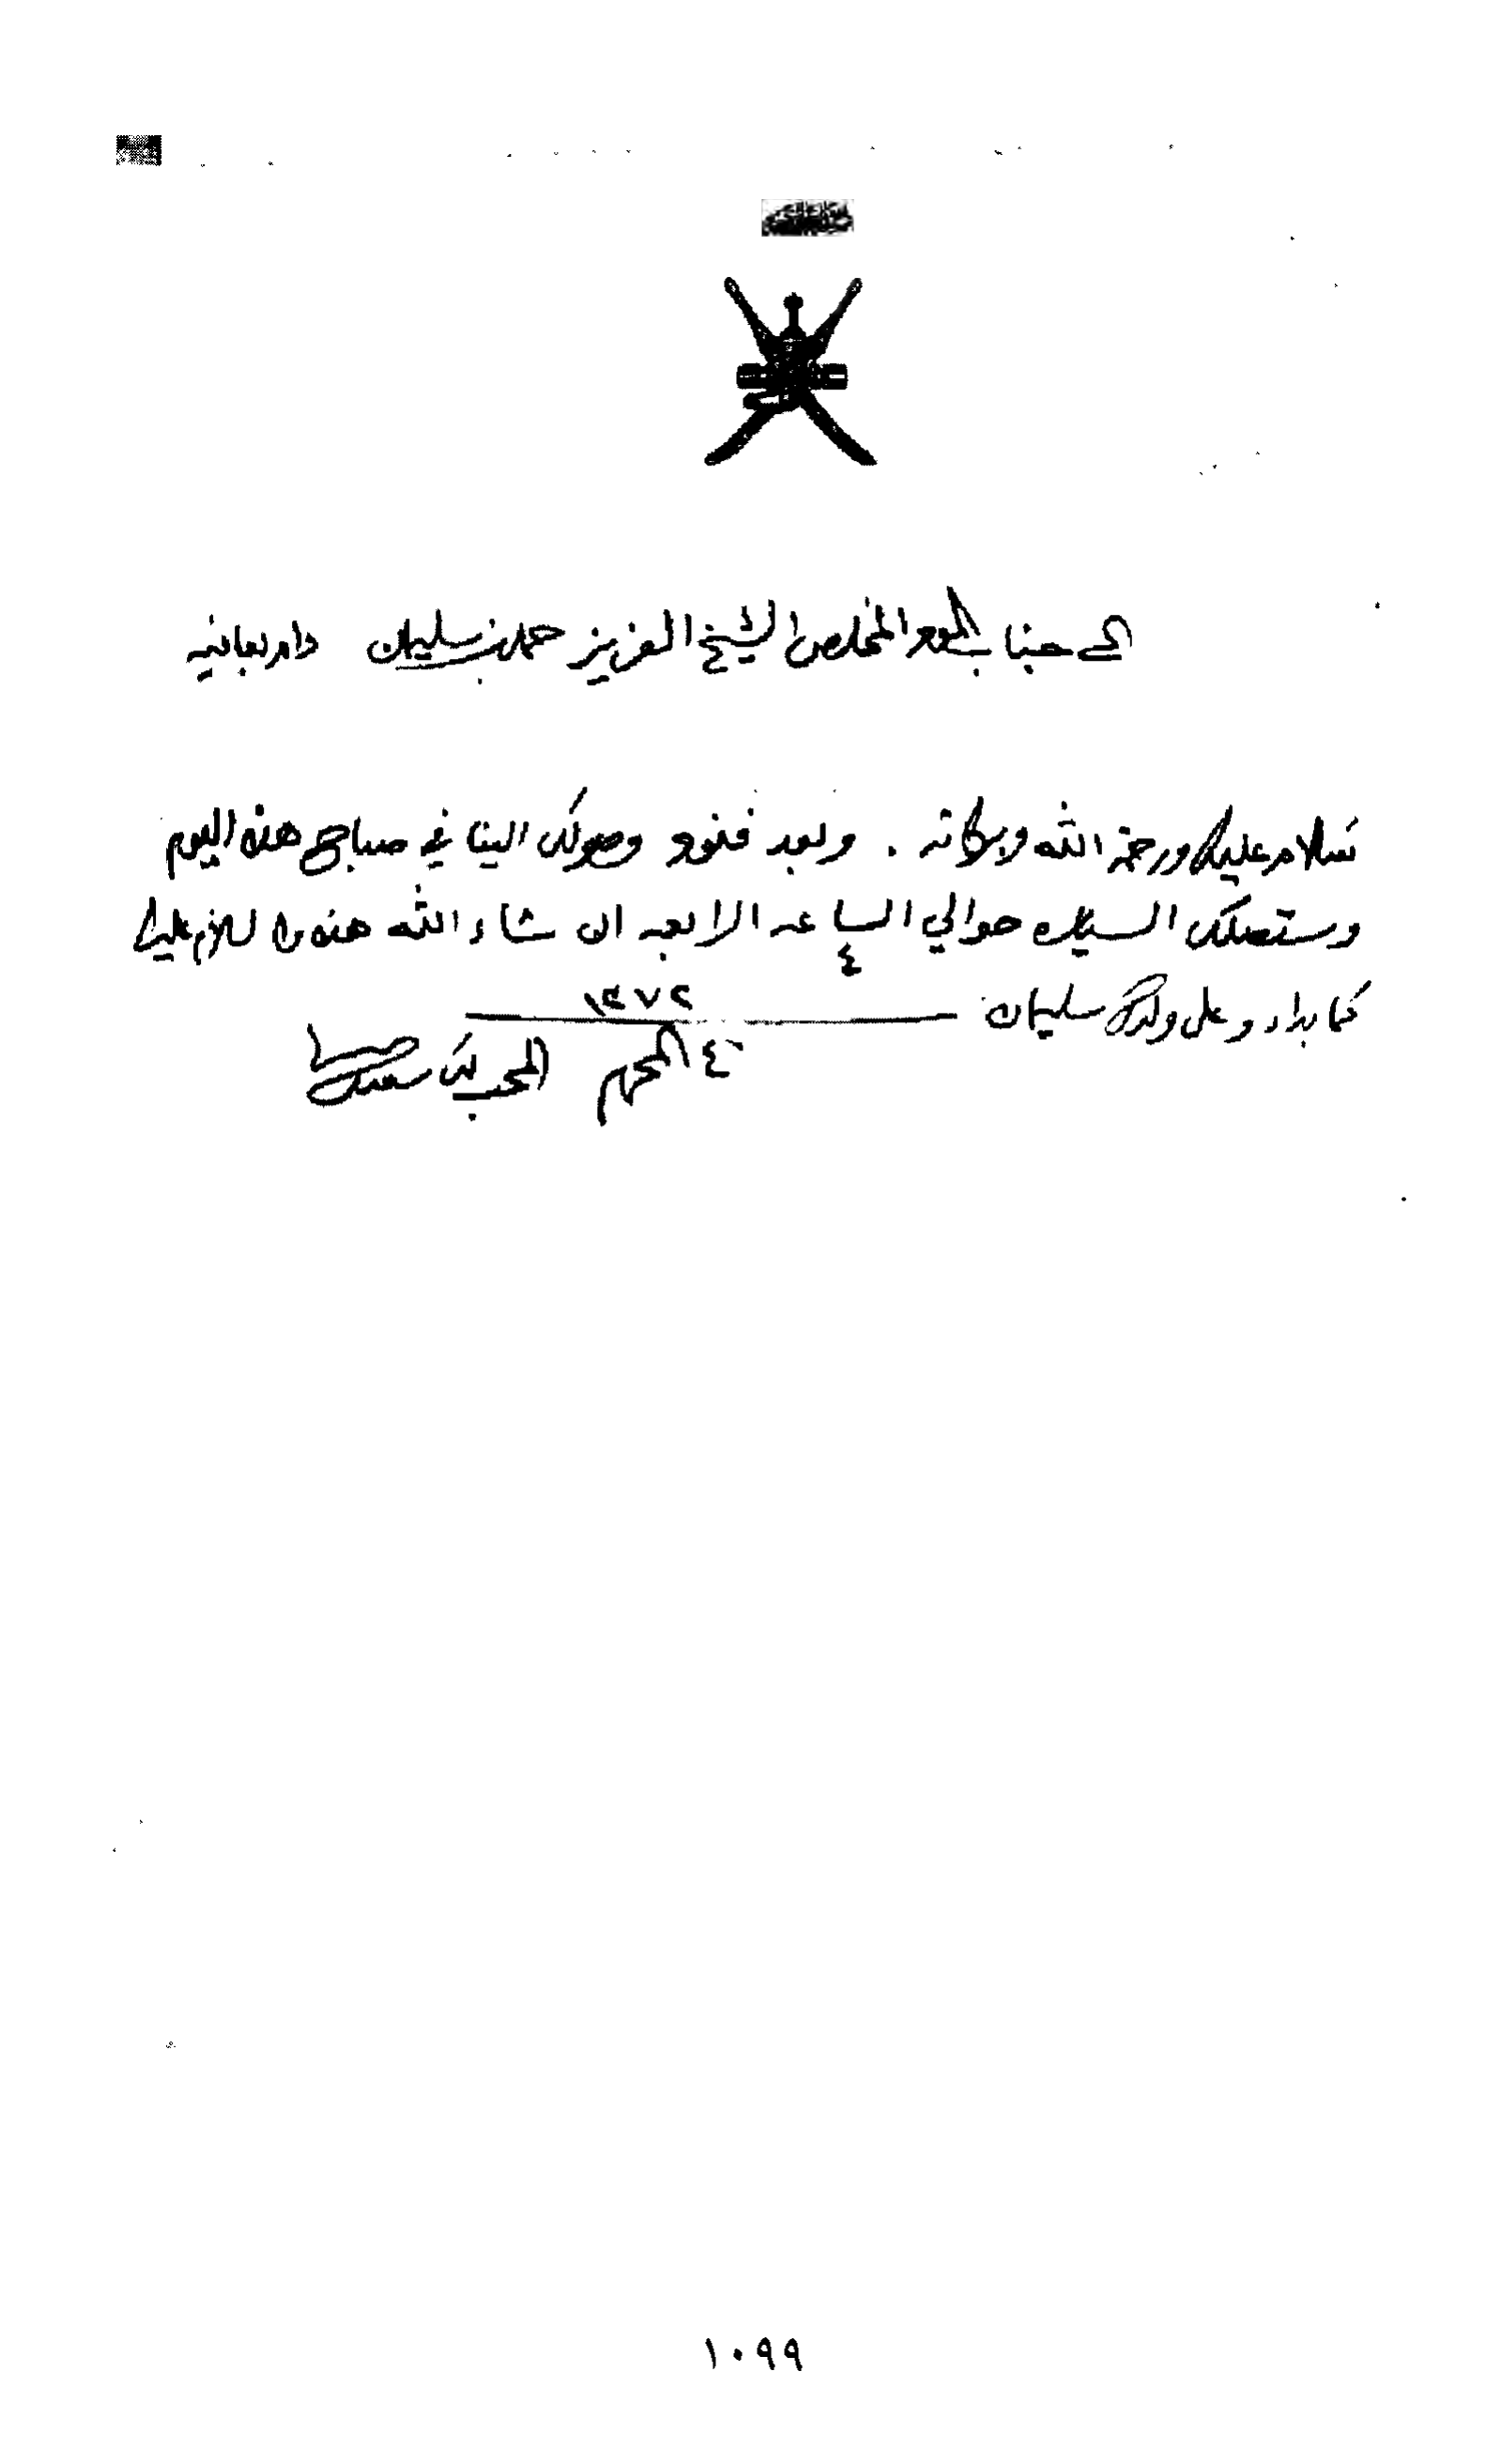 الى جناب المود المخلص الشيخ العزيز حمد بن سليمان دام بعافيه
سلام عليك ورحمة الله وبركاته . وبعد فنود وصولك الينا في صباح هذه اليوم
وستصلك السياره حوالي الساعه الرابعه ان شاء الله هذه والسلام عليك
٤
كما بداء وعلى ولدك سليمان
١٣٧٢
٤ المحرم المحب لك سعيد
١٠٩٩